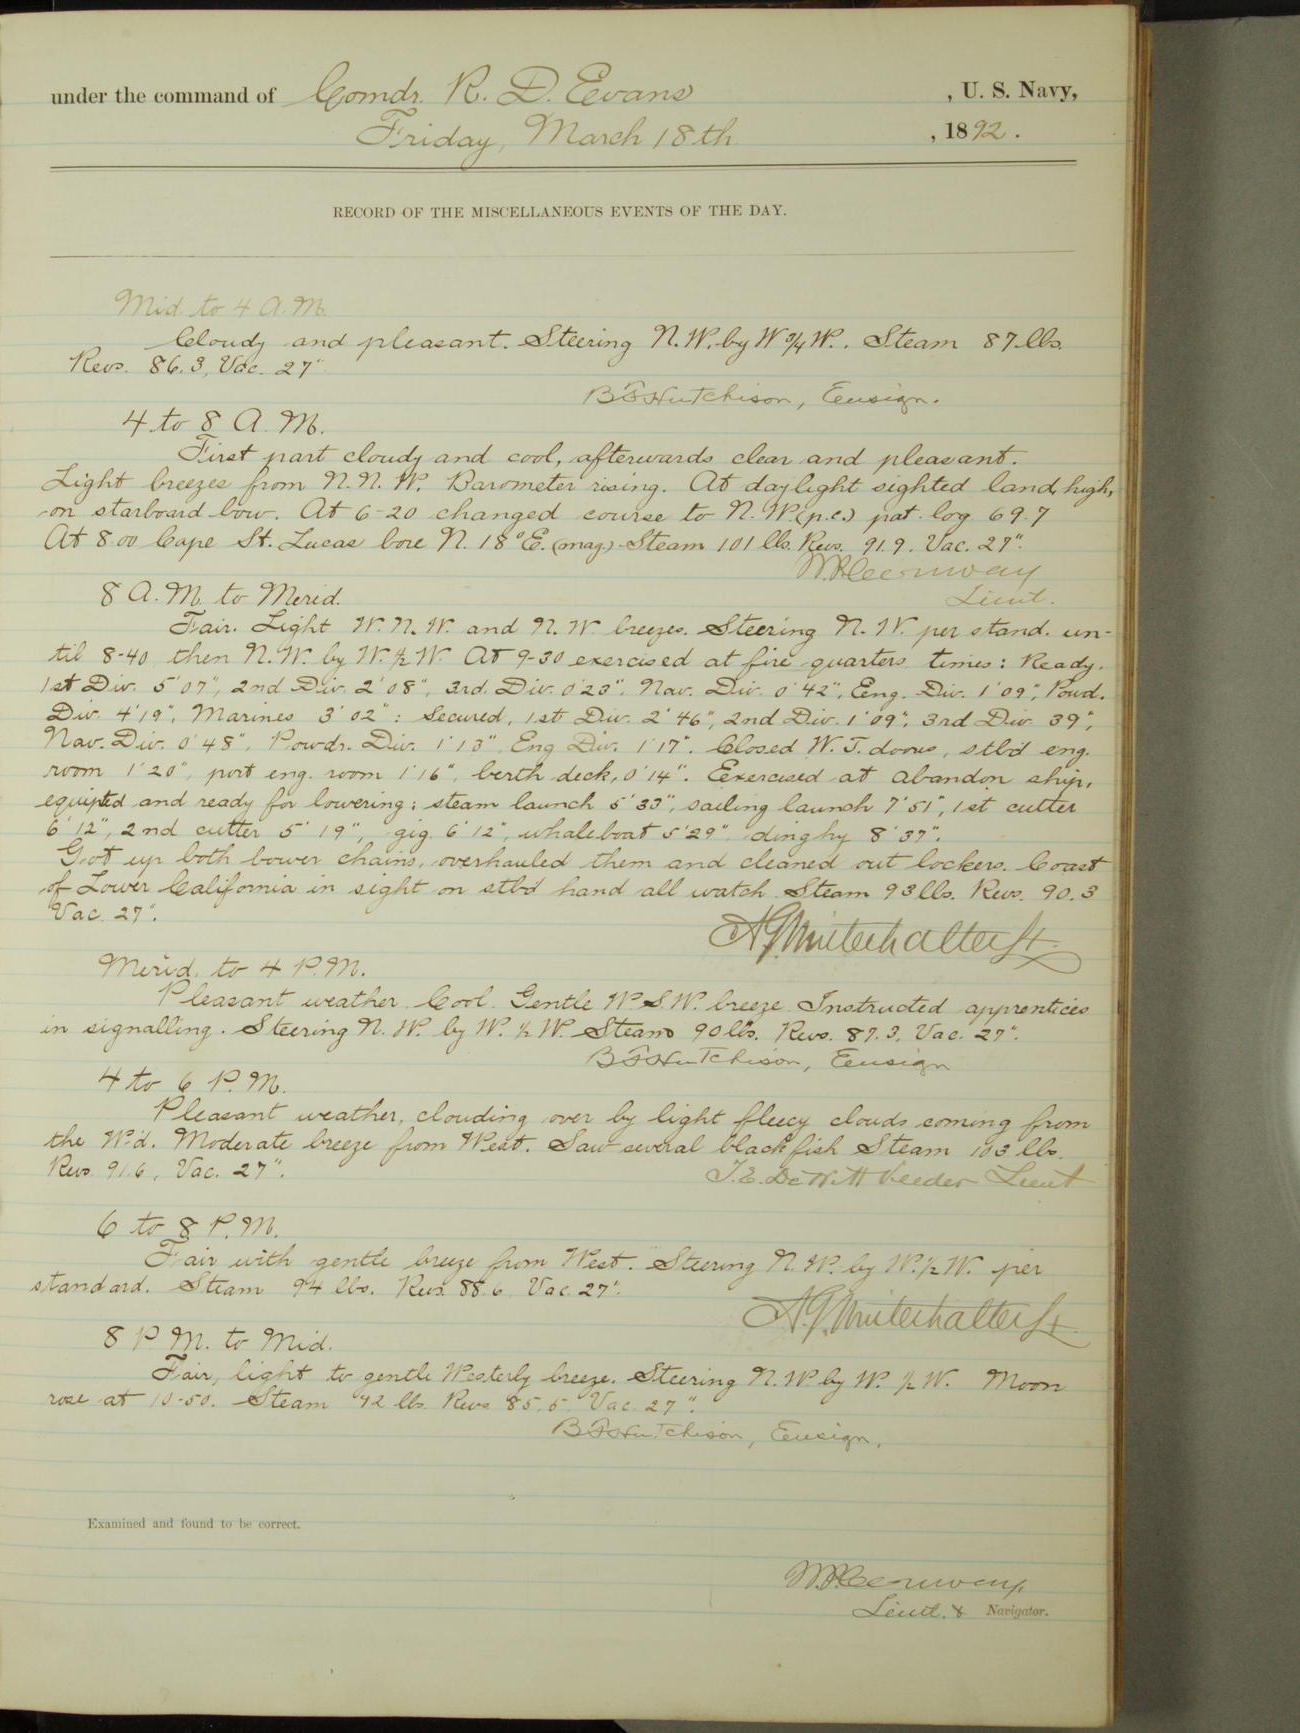 under the command of Comdr. R. D. Evans , U. S. Navy,
Friday, March 18th , 1892.
RECORD OF THE MISCELLANEOUS EVENTS OF THE DAY.
Mid. to 4 A.M.
Cloudy and pleasant. Steering N.W. by W ¾ W. Steam 87 lbs.
Revs. 86.3, Vac. 27".
B F Hutchison, Ensign.
4 to 8 A.M.
First part cloudy and cool, afterwards clear and pleasant.
Light breezes from N.N.W. Barometer rising. At daylight sighted land, high,
on starboard bow. At 6-20 changed course to N.W. (p.c.) pat. log 69.7
At 8.00 Cape St. Lucas bore N. 18°E. (mag.) Steam 101 lbs. Revs. 91.9. Vac. 27".
Lieut.
8 A.M. to Merid.
Fair. Light W.N.W. and N.W. breezes. Steering N.W. per stand. un-
til 8-40 then N.W. by W. ½ W. At 9-30 exercised at fire quarters, times: Ready.
1st Div. 5'07", 2nd Div. 2'08", 3rd. Div. 0'23", Nav. Div. 0'42", Eng. Div. 1'09", Powd.
Div. 4'19", Marines 3'02": Secured, 1st Div. 2'46", 2nd Div. 1'09", 3rd Div. 39",
Nav. Div. 0'48", Powdr. Div. 1'13", Eng Div. 1'17". Closed W.T. doors, stbd eng.
room 1'20", port eng. room 1'16", berth deck, 0'14". Exercised at abandon ship,
equipted and ready for lowering: steam launch 5'33", sailing launch 7'51", 1st cutter
6'12", 2nd cutter 5'19", gig 6'12", whaleboat 5'29", dinghy 8'37".
Got up both bower chains, overhauled them and cleaned out lockers. Coast
of Lower California in sight on stbd hand all watch. Steam 93 lbs. Revs. 90.3
Vac. 27".
A G Winterhalter Lt.
Merid. to 4 P.M.
Pleasant weather. Cool. Gentle W.S.W. breeze. Instructed apprentices
in signalling. Steering N.W. by W. ½ W. Steam 90 lbs. Revs. 87.3, Vac. 27".
B F Hutchison, Ensign
4 to 6 P.M.
Pleasant weather, clouding over by light fleecy clouds coming from
the W'd. Moderate breeze from West. Saw several blackfish Steam 103 lbs.
Revs. 91.6, Vac. 27".
T.E. DeWitt Veeder Lieut
6 to 8 P.M.
Fair with gentle breeze from West. Steering N.W. by W. ½ W. per
standard. Steam 94 lbs. Revs. 88.6 Vac. 27".
A.G. Winterhalter Lt.
8 P.M. to Mid.
Fair, light to gentle Westerly breeze. Steering N.W. by W. ½ W. Moon
rose at 10-50. Steam 92 lbs. Revs 85.5 Vac. 27".
B F Hutchison, Ensign.
Examined and found to be correct.
Lieut. & Navigator.